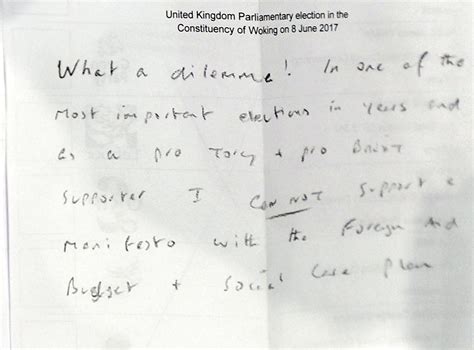 United Kingdom Parliamentary election in the
Constituency of Woking on 8 June 2017
What a dilemma! In one of the
most important elections in years and
as a pro Tory + pro Brixt
supporter I CAN NOT support a
manifesto with the Foreign Aid
Budget + Social Care Plan